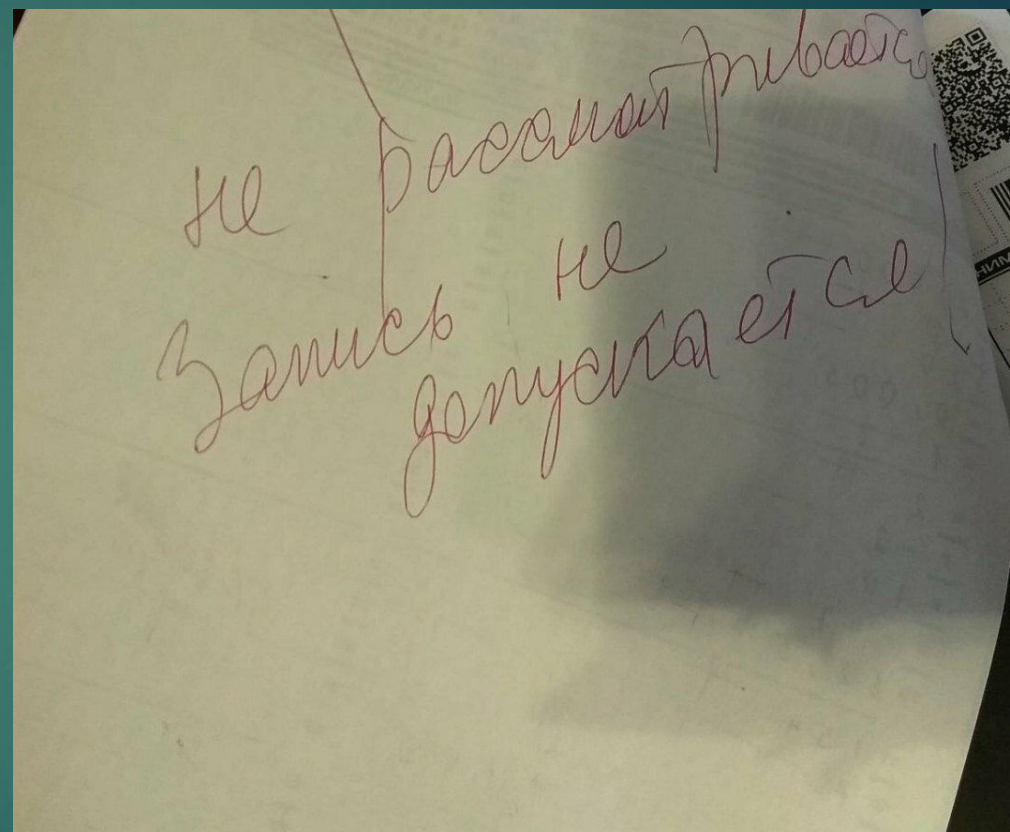 не рассматривается
Запись не
допускается
НИМ